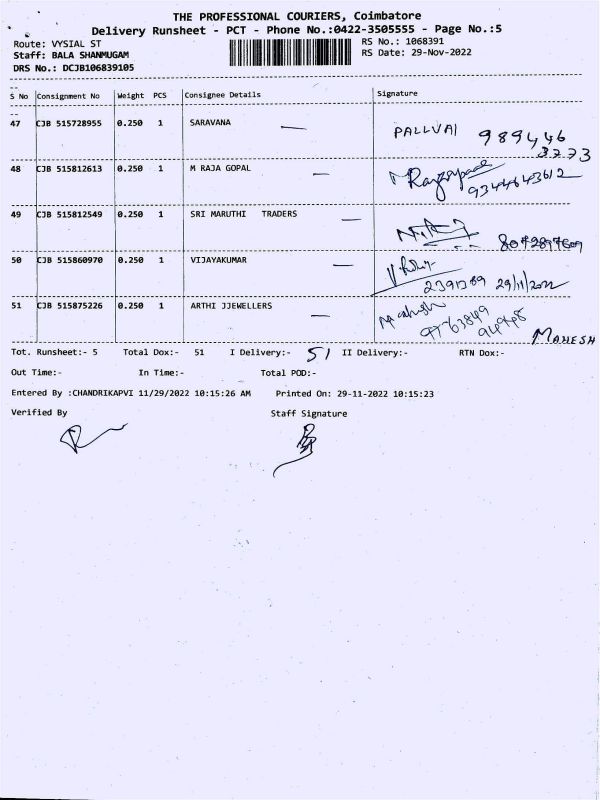 THE PROFESSIONAL COURIERS, Coimbatore
Delivery Runsheet - PCT - Phone No.:0422-3505555 - Page No.:5
Route: VYSIAL ST
RS No.: 1068391
Staff: BALA SHANMUGAM
RS Date: 29-Nov-2022
DRS No.: DCJB106839105
S No Consignment No Weight PCS Consignee Details Signature
47 CJB 515728955 0.250 1 SARAVANA PALLVAI 989446
3773
48 CJB 515812613 0.250 1 M RAJA GOPAL
9344643612
49 CJB 515812549 0.250 1 SRI MARUTHI TRADERS
50 CJB 515860970 0.250 1 VIJAYAKUMAR
29/11/2022
51 CJB 515875226 0.250 1 ARTHI JJEWELLERS
MAHESH
Tot. Runsheet:- 5 Total Dox:- 51 I Delivery:- 51 II Delivery:- RTN Dox:-
Out Time:- In Time:- Total POD:-
Entered By :CHANDRIKAPVI 11/29/2022 10:15:26 AM Printed On: 29-11-2022 10:15:23
Verified By Staff Signature